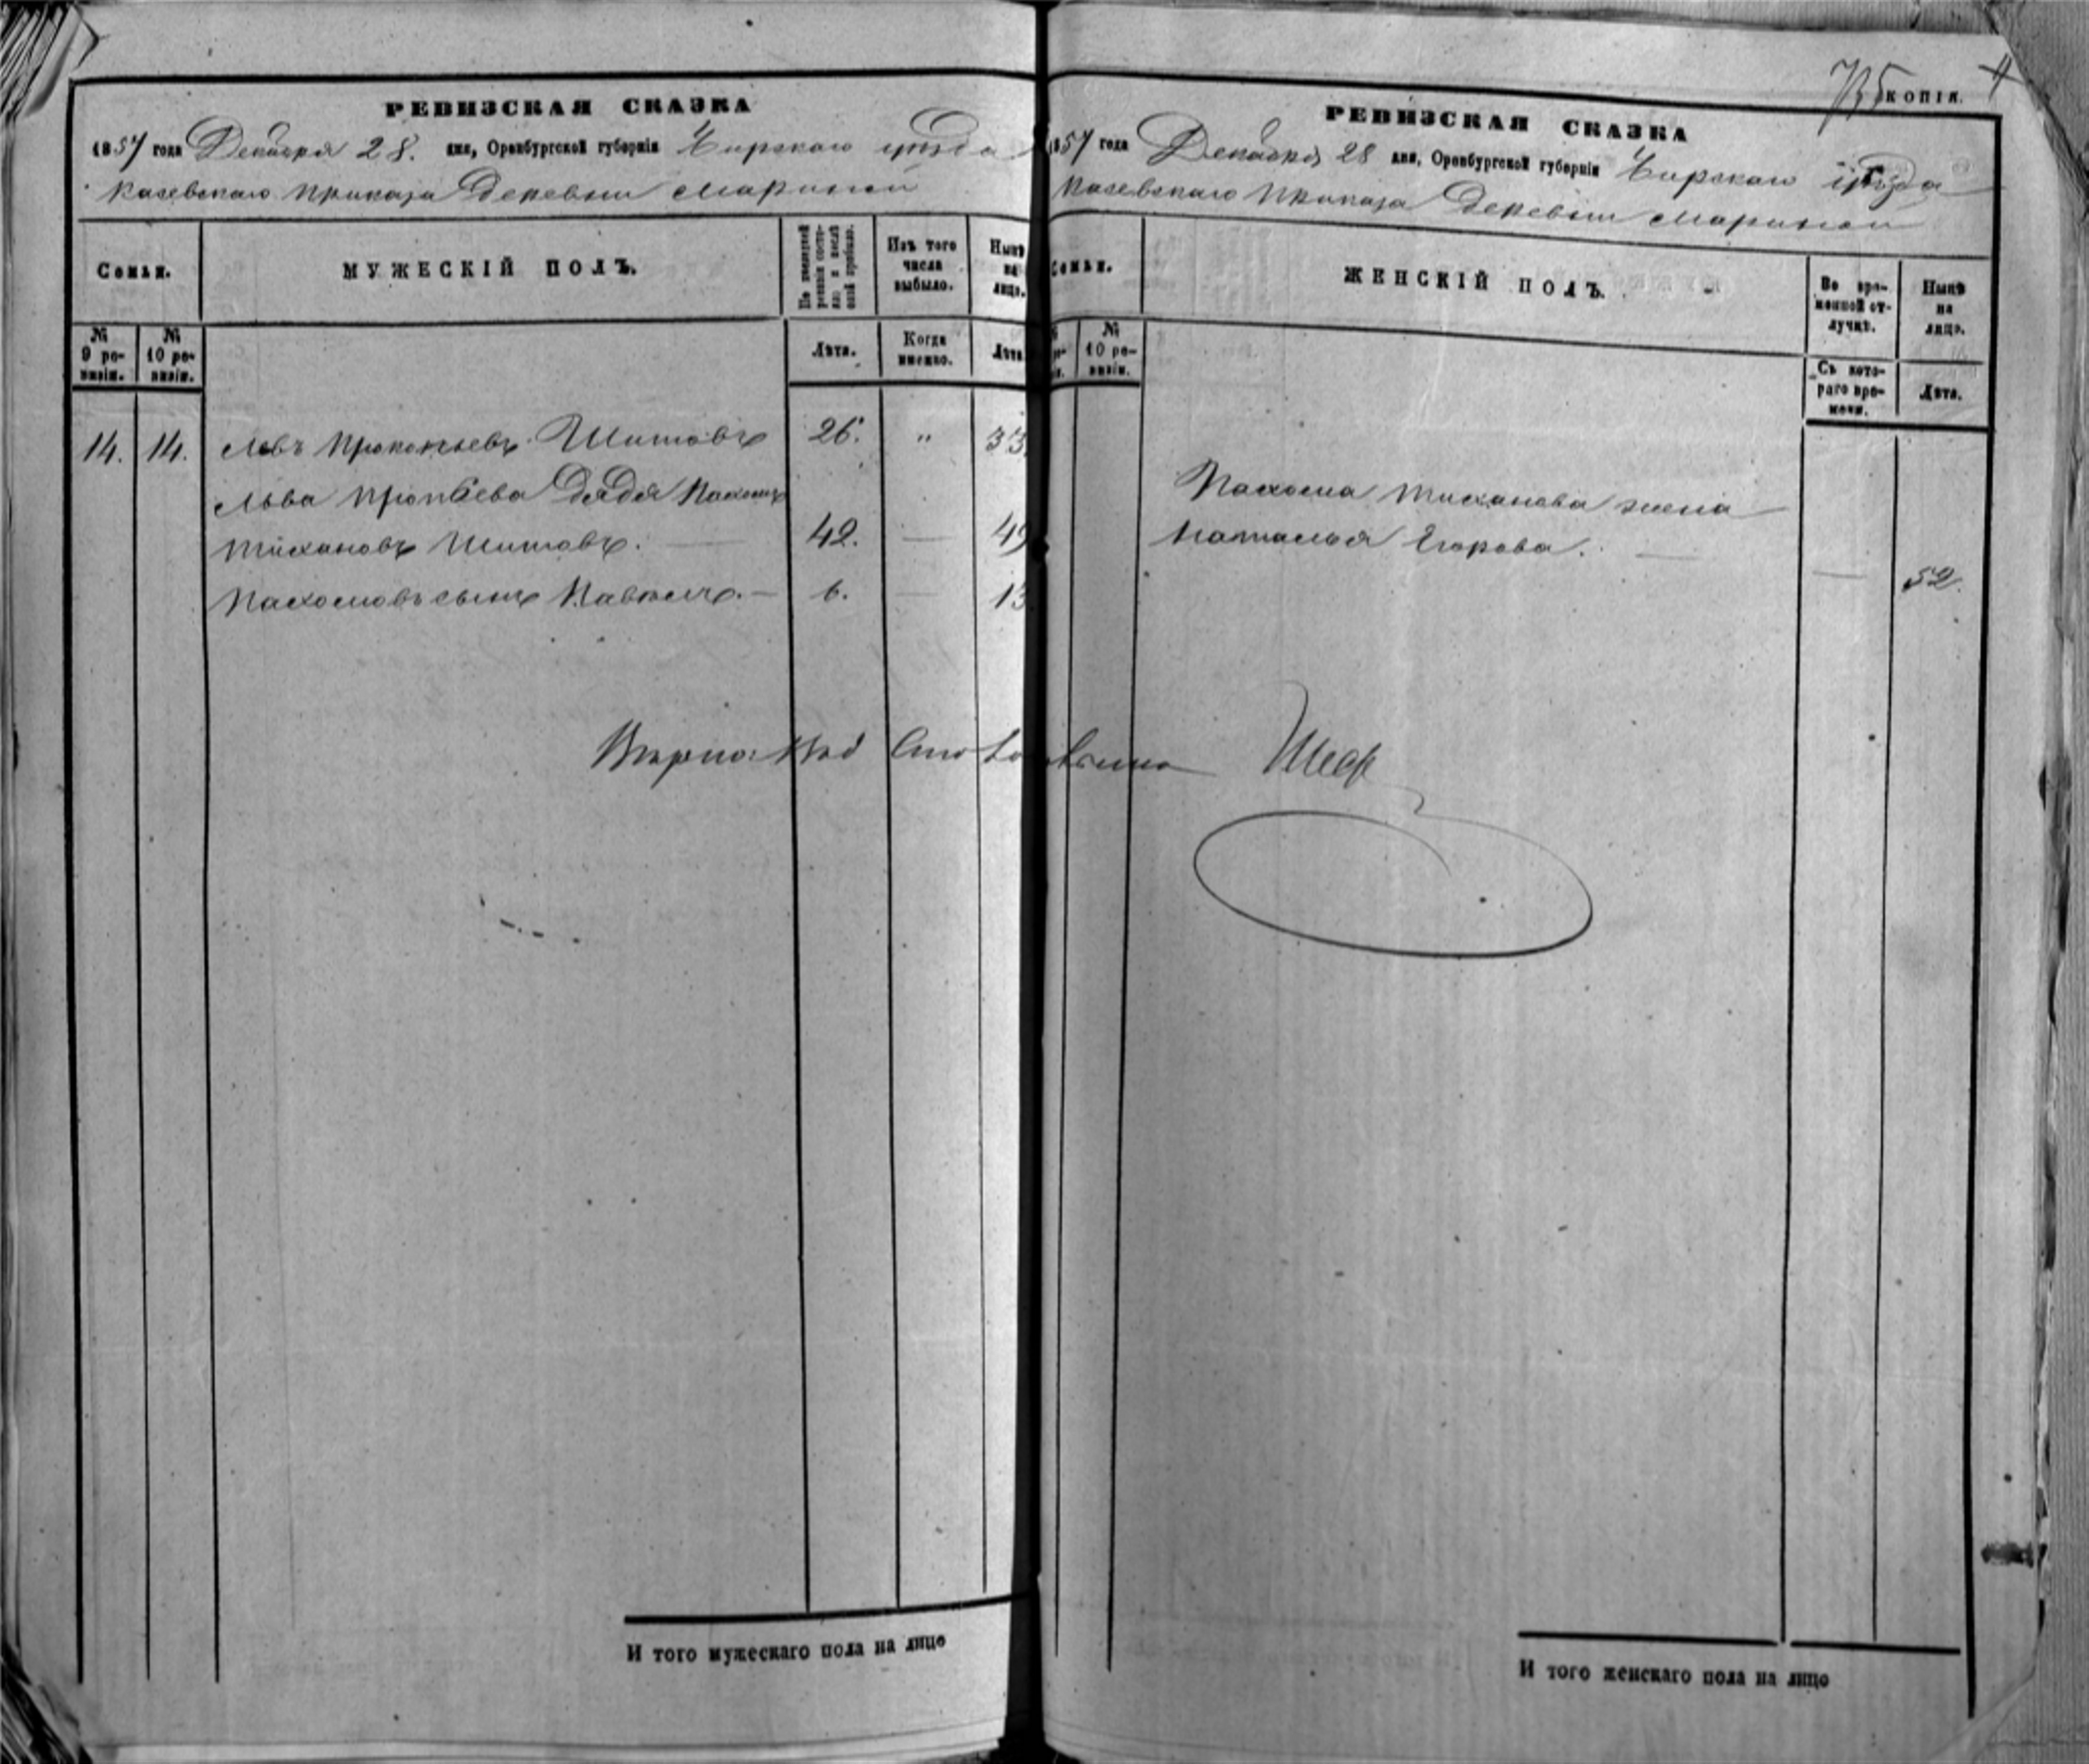 РЕВИЗСКАЯ СКАЗКА
1857 года Декабря 28. дня, Оренбургской губерніи Бирскаго уѣзда
Касевскаго Приказа Деревни Мариной
Семьи.
МУЖЕСКІЙ ПОЛЪ.
По последней ревизіи состояло и после оной прибыло.
Изъ того числа выбыло.
Нынѣ на лицо.
№ 9 ревизіи.
№ 10 ревизіи.
Лѣта.
Когда именно.
Лѣта
14. 14. Левъ Прокопьевъ Шитовъ 26. " 33.
Льва Прокпьева Дядя Пахомъ
Тихановъ Шитовъ. — 42. — 49
Пахомовъ сынъ Павелъ. — 6. — 13
Вѣрно: Над
И того мужескаго пола на лицо
КОПІЯ.
РЕВИЗСКАЯ СКАЗКА
1857 года Декабря 28 дня, Оренбургской губерніи Бирскаго уѣзда
Касевскаго Приказа Деревни Мариной
Семьи.
ЖЕНСКІЙ ПОЛЪ.
Во временной отлучкѣ.
Нынѣ на лицо.
№ 10 ревизіи.
Съ котораго времени.
Лѣта.
Пахома Тиханова жена
Наталья Егорова. — — 52.
И того женскаго пола на лицо